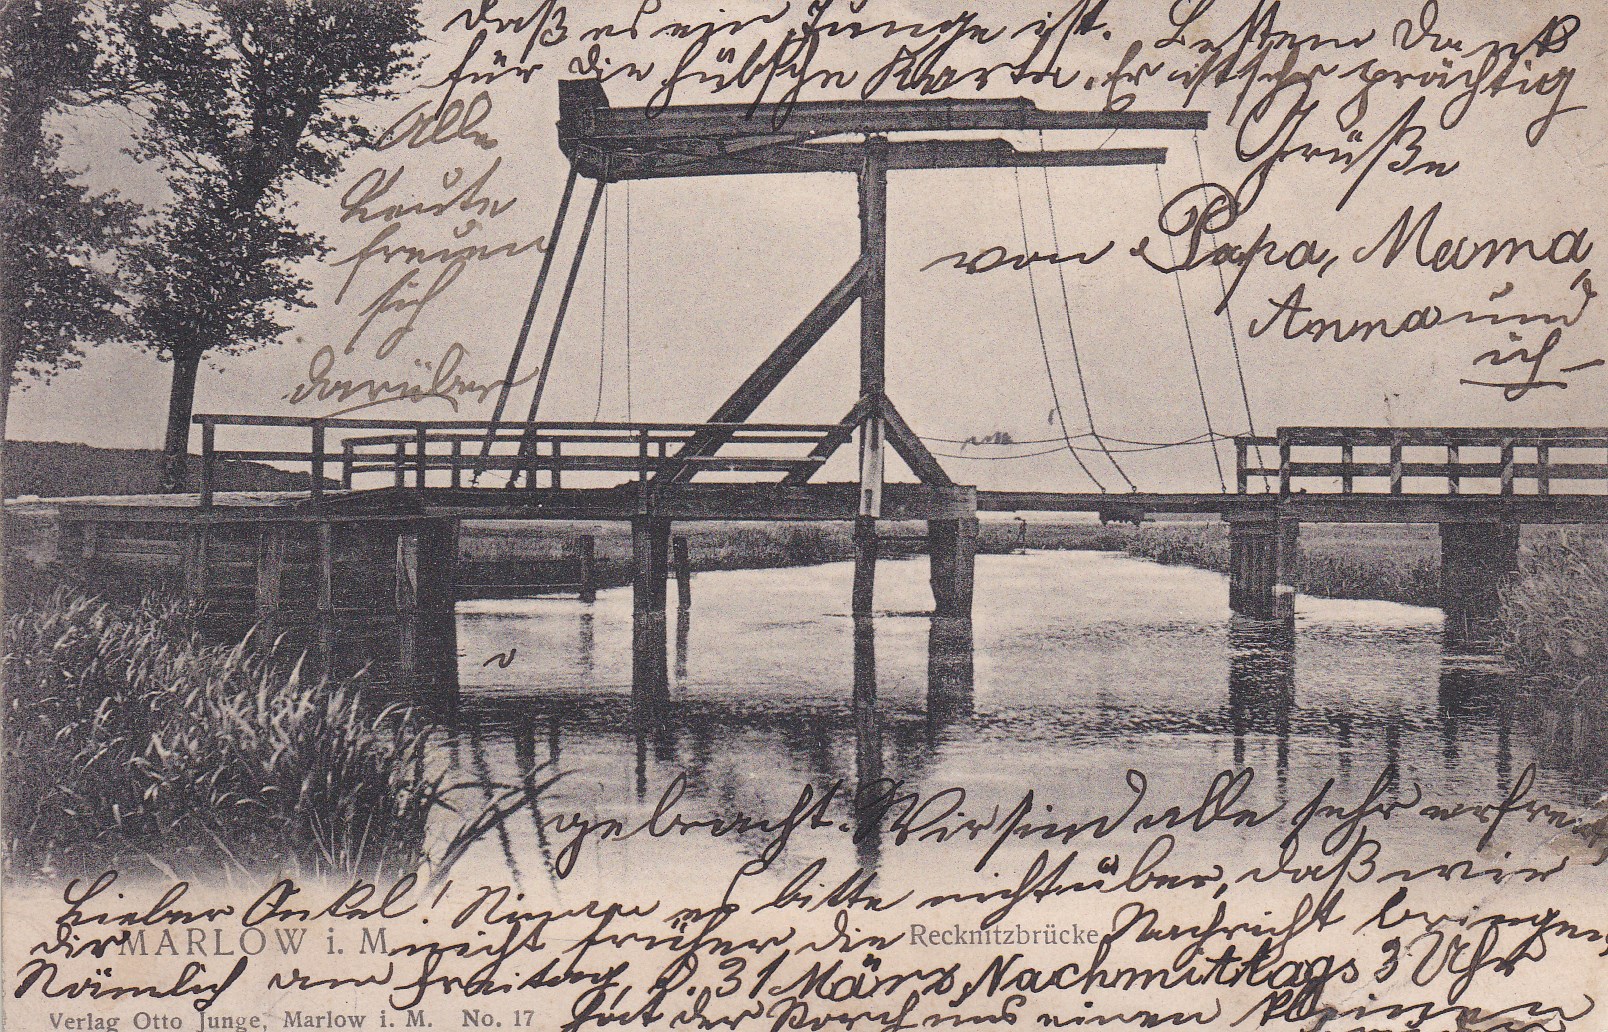 Lieber Onkel! Nimm es bitte nicht über, daß wir
dir nicht früher die Nachricht bringen,
Nämlich am Freitag, d. 31 März Nachmittags 3 Uhr
hat der Storch uns einen kleinen
gebracht. Wir sind alle sehr erfreut,
daß es ein Junge ist. Besten Dank
für die hübsche Karte. Er ist sehr prächtig
Grüße
von Papa, Mama,
Anna und
ich
Alle
Leute
freuen
sich
darüber
MARLOW i. M. Recknitzbrücke
Verlag Otto Junge, Marlow i. M. No. 17